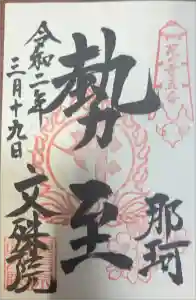 那珂
勢至
文殊院
令和二年
三月十九日